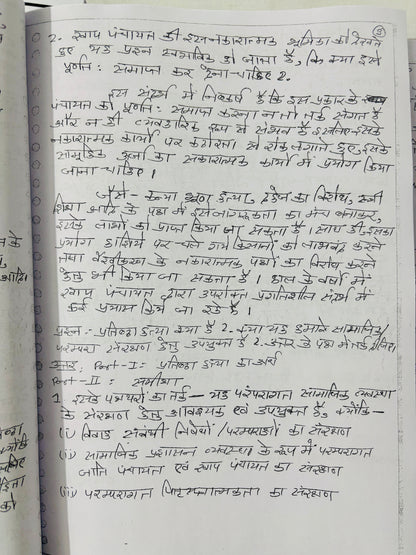 3
2. खाप पंचायत की इस नकारात्मक भूमिका को देखते
हुए यह प्रश्न स्वभाविक हो जाता है, कि क्या इसे
पूर्णत: समाप्त कर देना चाहिए ?
इस संदर्भ में निष्कर्ष है कि इस प्रकार के
पंचायत को पूर्णत: समाप्त करना न तो तर्क संगत है
और न ही व्यवहारिक रूप से संभव है इसलिए इसके
नकारात्मक कार्यों पर कठोरता से रोक लगाते हुए, इसके
सामूहिक ऊर्जा का सकारात्मक कार्यों में प्रयोग किया
जाना चाहिए।
जैसे - कन्या भ्रूण हत्या, दहेज का विरोध, स्त्री
शिक्षा आदि के पक्ष में इसे जागरूकता का मंच बनाकर,
इसके लाभों को प्राप्त किया जा सकता है। साथ ही इसका
प्रयोग हाशिये पर चले गये किसानों को लाभबंद करने
तथा वैश्वीकरण के नकारात्मक पक्षों का विरोध करने
हेतु भी किया जा सकता है। हाल के वर्षों में
खाप पंचायत द्वारा उपरोक्त प्रगतिशील संदर्भ में
कई प्रयास किये जा रहे हैं।
प्रश्न:- प्रतिष्ठा हत्या क्या है ? क्या यह हमारे सामाजिक/
परम्परा संरक्षण हेतु उपयुक्त है ? उत्तर के पक्ष में तर्क दीजिए।
उत्तर: Part-I: प्रतिष्ठा हत्या का अर्थ
Part-II: समीक्षा
1. इसके पक्षधरों का तर्क - यह परंपरागत सामाजिक व्यवस्था
के संरक्षण हेतु आवश्यक एवं उपयुक्त है, क्योंकि -
(i) विवाह संबंधी निषेधों/परम्पराओं का संरक्षण
(ii) सामाजिक प्रशासन व्यवस्था के रूप में परम्परागत
जाति पंचायत एवं खाप पंचायत का संरक्षण
(iii) परम्परागत पितृसत्तात्मकता का संरक्षण